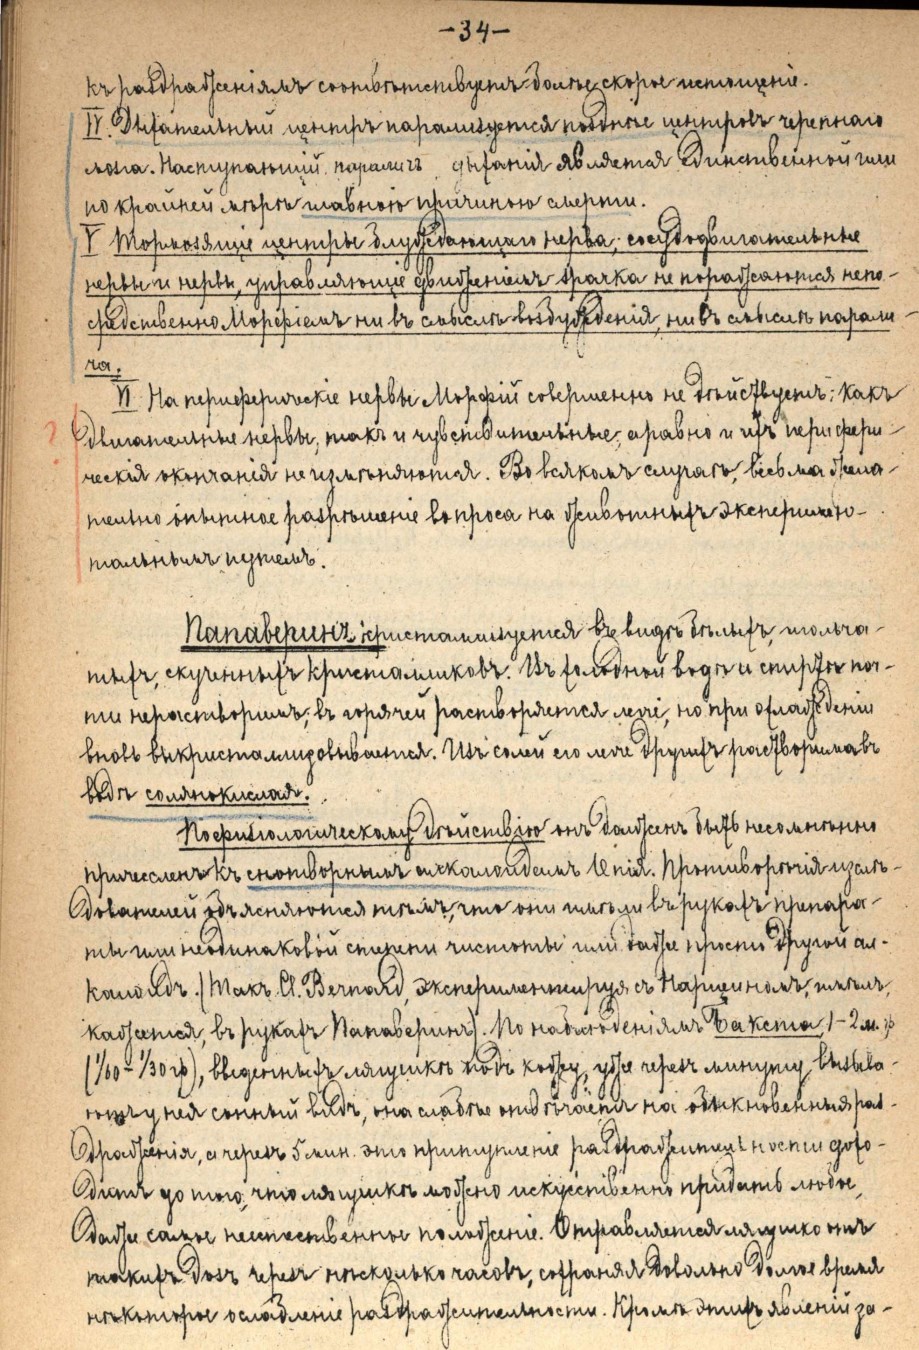 -34-
къ раздраженіямъ соотвѣтствуетъ болѣе скорое истощеніе.
IV. Дыхательный центръ парализуется позднѣе центровъ черепнаго
мозга. Наступающій параличъ дыханія является единственной или
по крайней мѣрѣ главною причиною смерти.
V Тормозящіе центры блуждающаго нерва, сосудодвигательные
нервы и нервы, управляющіе движеніемъ зрачка не поражаются непо-
средственно Морфіемъ ни въ смыслѣ возбужденія, ни въ смыслѣ парали-
ча.
VI На периферическіе нервы Морфій совершенно не дѣйствуетъ: какъ
? двигательные нервы, такъ и чувствительные, а равно и ихъ перифери-
ческія окончанія не измѣняются. Во всякомъ случаѣ, весьма жела-
тельно опытное разрѣшеніе вопроса на животныхъ эксперимен-
тальнымъ путемъ.
Папаверинъ кристаллизуется въ видѣ бѣлыхъ, иольча-
тыхъ, скученныхъ кристалликовъ. Въ холодной водѣ и спиртѣ поч-
ти нерастворимъ, въ горячей растворяется легче, но при охлажденіи
вновь выкристаллизовывается. Изъ солей его легче другихъ растворима въ
водѣ солянокислая.
По физіологическому дѣйствію онъ долженъ быть несомнѣнно
причисленъ къ снотворнымъ алкалоидамъ Опія. Противорѣчія изслѣ-
дователей объясняются тѣмъ, что они имѣли въ рукахъ препара-
ты или неодинаковой степени чистоты или даже просто другой ал-
калоидъ. (Такъ Cl. Bernard, экспериментируя съ Нарцеиномъ, имѣлъ,
кажется, въ рукахъ Папаверинъ). По наблюденіямъ Бакста, 1-2 м. гр
(1/60 - 1/30 гр), введенныхъ лягушкѣ подъ кожу, уже черезъ минуту, вызыва-
ютъ у нея сонный видъ, она слабѣе отвѣчаетъ на обыкновенныя раз-
драженія, а черезъ 5 мин. это притупленіе раздражительности дохо-
дитъ до того, что лягушкѣ можно искусственно придать любое,
даже самое неестественное положеніе. Оправляется лягушка отъ
такихъ дозъ черезъ нѣсколько часовъ, сохраняя довольно долгое время
нѣкоторое ослабленіе раздражительности. Кромѣ этихъ явленій за-